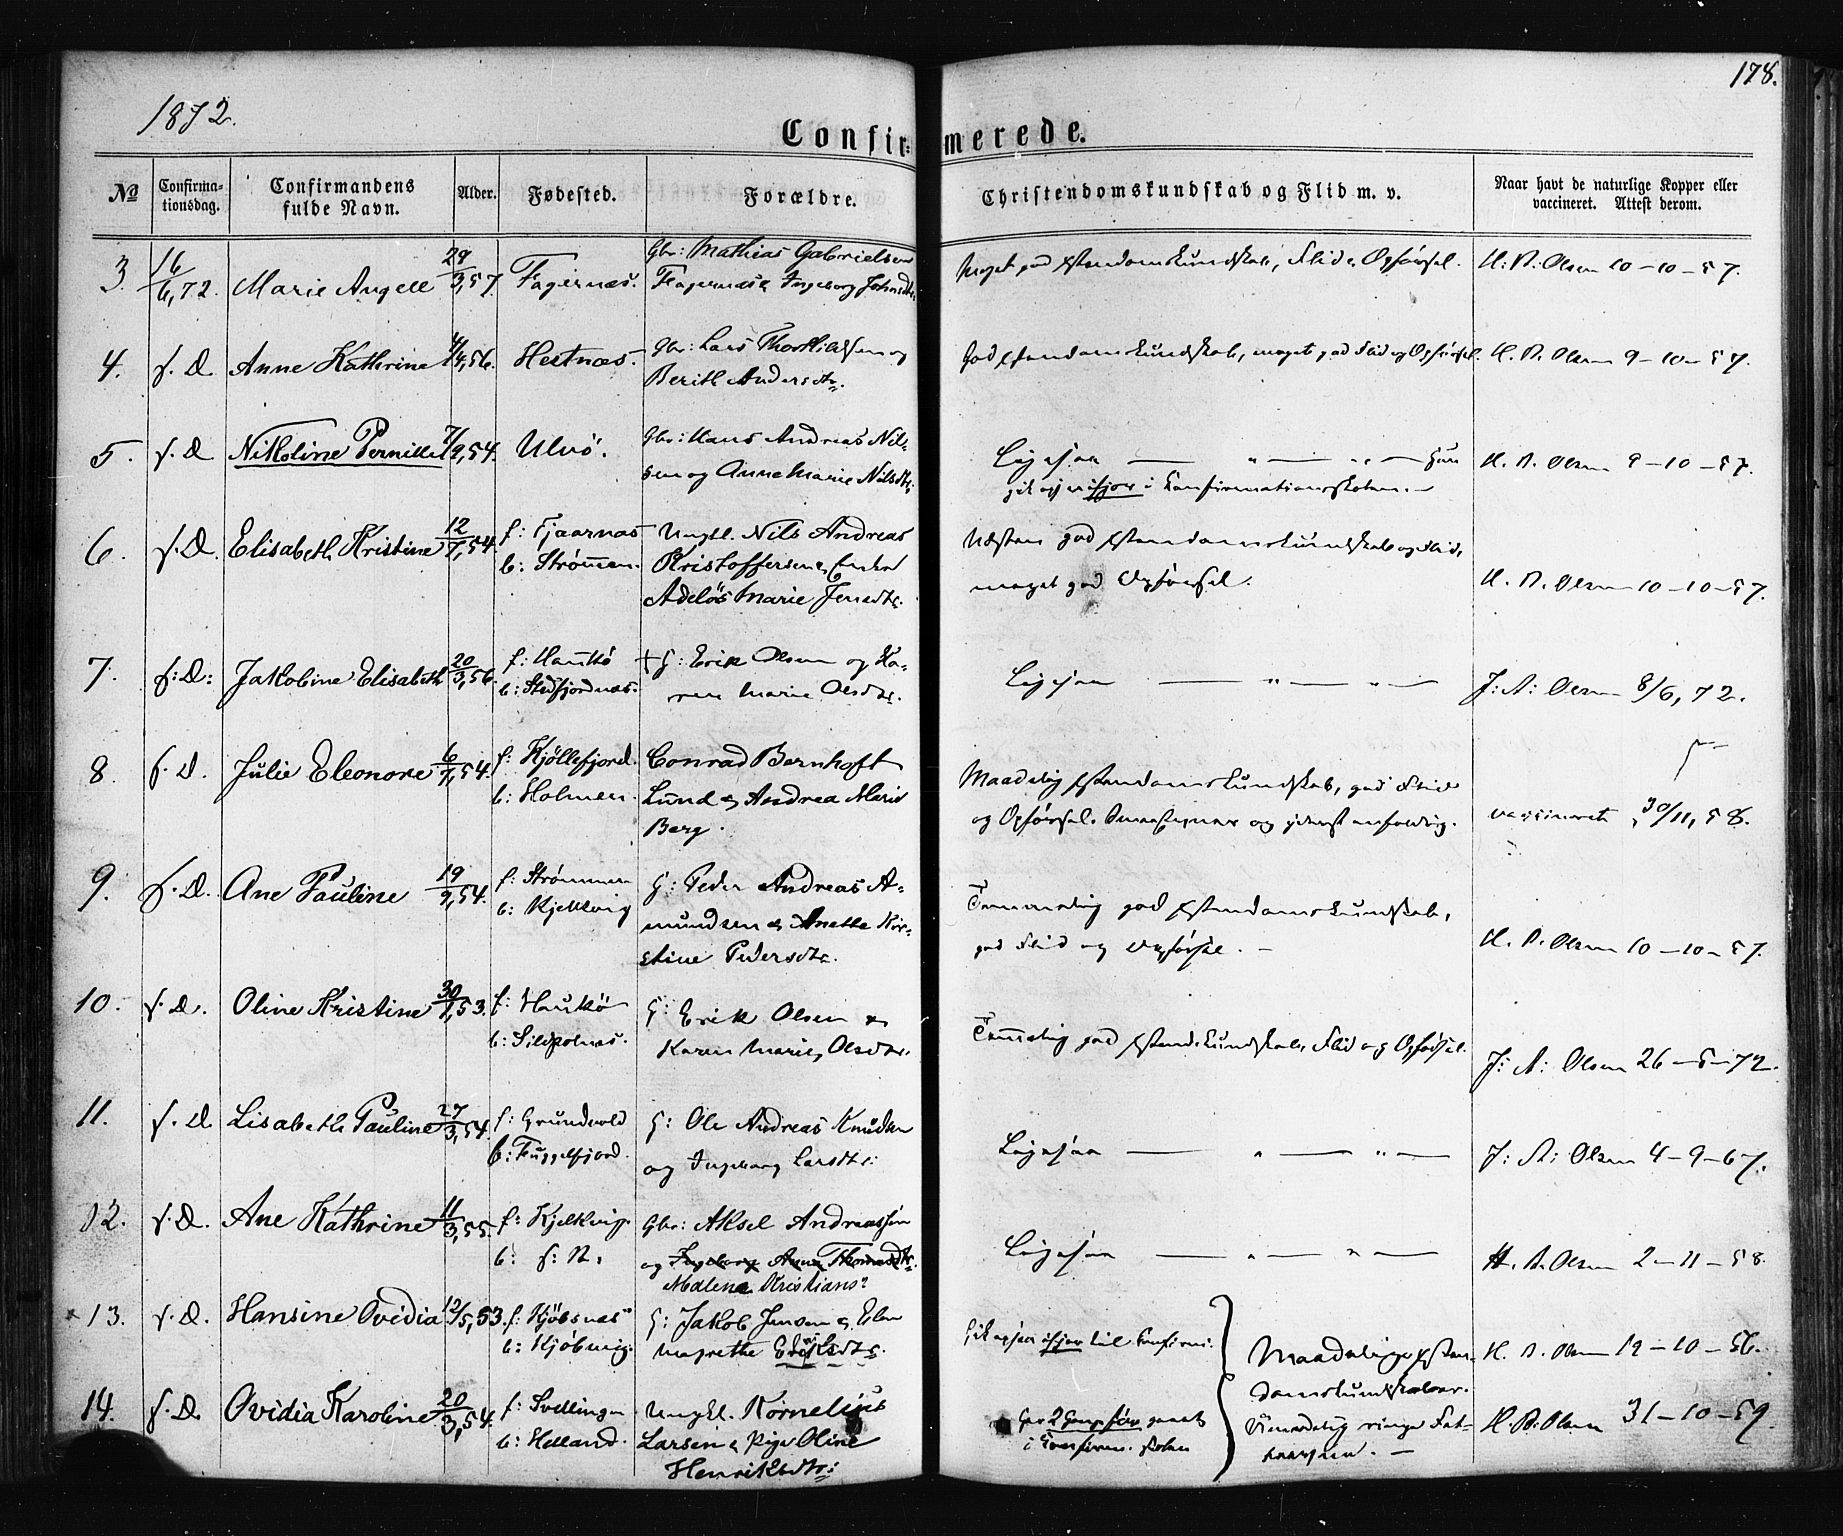 178.
1872.
Confir- merede.
No Confirma-tionsdag. Confirmandens fulde Navn. Alder. Fødested. Forældre. Christendomskundskab og Flid m. v. Naar havt de naturlige Kopper eller vaccineret. Attest derom.
3. 16/6,72. Marie Angell 29/3,57. Fagernæs. Gbr: Mathias Gabrielsen
Fagernæs & Ingeborg Johnsdtr
Meget god Xstendomskundskab, Flid & Opførsel. H: A: Olsen 10-10-57.
4. s. D. Anne Kathrine 4/4,56. Hestnæs. Gbr: Lars Thorkildsen og
Berith Andersdtr.
God Xstendomskundskab, meget god Flid og Opførsel. H. A. Olsen 9-10-57.
5. s. D Nikoline Pernille 7/9,54. Ulvö. Gbr: Hans Andreas Nil-
sen og Anne Marie Nilsdtr.
Ligesaa — " — " — Hun
gik ogsaa ifjor i Confirmationsskolen.—
H. A. Olsen 9-10-57.
6. s. D. Elisabeth Kristine 12/7,54. f: Tjaarnæs
b: Strømmen.
Ungkl. Nils Andreas
Kristoffersen & Enke
Adelös Marie Jensdtr.
Næsten god Xstendomskundskab og Flid,
meget god Opførsel.
H. A. Olsen 10-10-57.
7. s: D: Jakobine Elisabeth 20/3,56. f: Haukö
b: Stufjordnæs.
+ G: Erik Olsen og Ka-
ren Marie Olsdtr.
Ligesaa — " — " — J: A: Olsen 8/6, 72.
8. s. D. Julie Eleonore 6/7,54. f: Kjöllefjord.
b: Holmen.
Conrad Bernhoft
Lund & Andrea Marie
Berg.
Maadelig Xstendomskundskab, god Flid
og Opførsel. Smaa Evner og yderst enfoldig.
vaccineret 30/11, 58.
9. s. D. Ane Pauline 19/9,54. f: Strømmen
b: Kjelkvig
G: Peder Andreas A-
mundsen & Anette Kir-
stine Pedersdtr.
Temmelig god Xstendomskundskab,
god Flid og Opførsel. —
H. A. Olsen 10-10-57.
10. s. D. Oline Kristine 30/1,53. f: Haukö
b: Sildpolnæs.
G: Erik Olsen &
Karen Marie Olsdtr.
Temmelig god Xstendskundskab, Flid og Opførsel.
J: A: Olsen 26-5-72.
11. s. D Lisabeth Pauline 27/3,54. f: Grundvold
b: Fuggelfjord.
G: Ole Andreas Knudsen
og Ingeborg Larsdtr:
Ligesaa — " — " — J: A: Olsen 4-9-67.
12. s. D. Ane Kathrine 11/3,55. f: Kjelkvig
b: s: St:
Gbr: Aksel Andreassen
og Ingeborg Anne Thomasdtr.
Malena Kristians?
Ligesaa — " — " — H. A. Olsen 2-11-58.
13. s. D. Hansine Ovidia 12/5,53. f: Kjöbsnæs
b: Kjöbvig.
G: Jakob Jensen & Elen
Magrethe Eriksdtr.
Gik ogsaa ifjor til Confirm:
H. A. Olsen 19-10-56.
14. s. D. Ovidia Karoline 20/3,54. f: Svellingen
b: Helland.
Ungkl. Kornelius
Larsen & Pige Oline
Henriksdtr:
Har 2 Gange før gaaet
i Confirm. skolen
Maadelige Xsten-
domskundskaber.
Umaadelig ringe Fat-
teevne. —
H. A. Olsen 31-10-59.